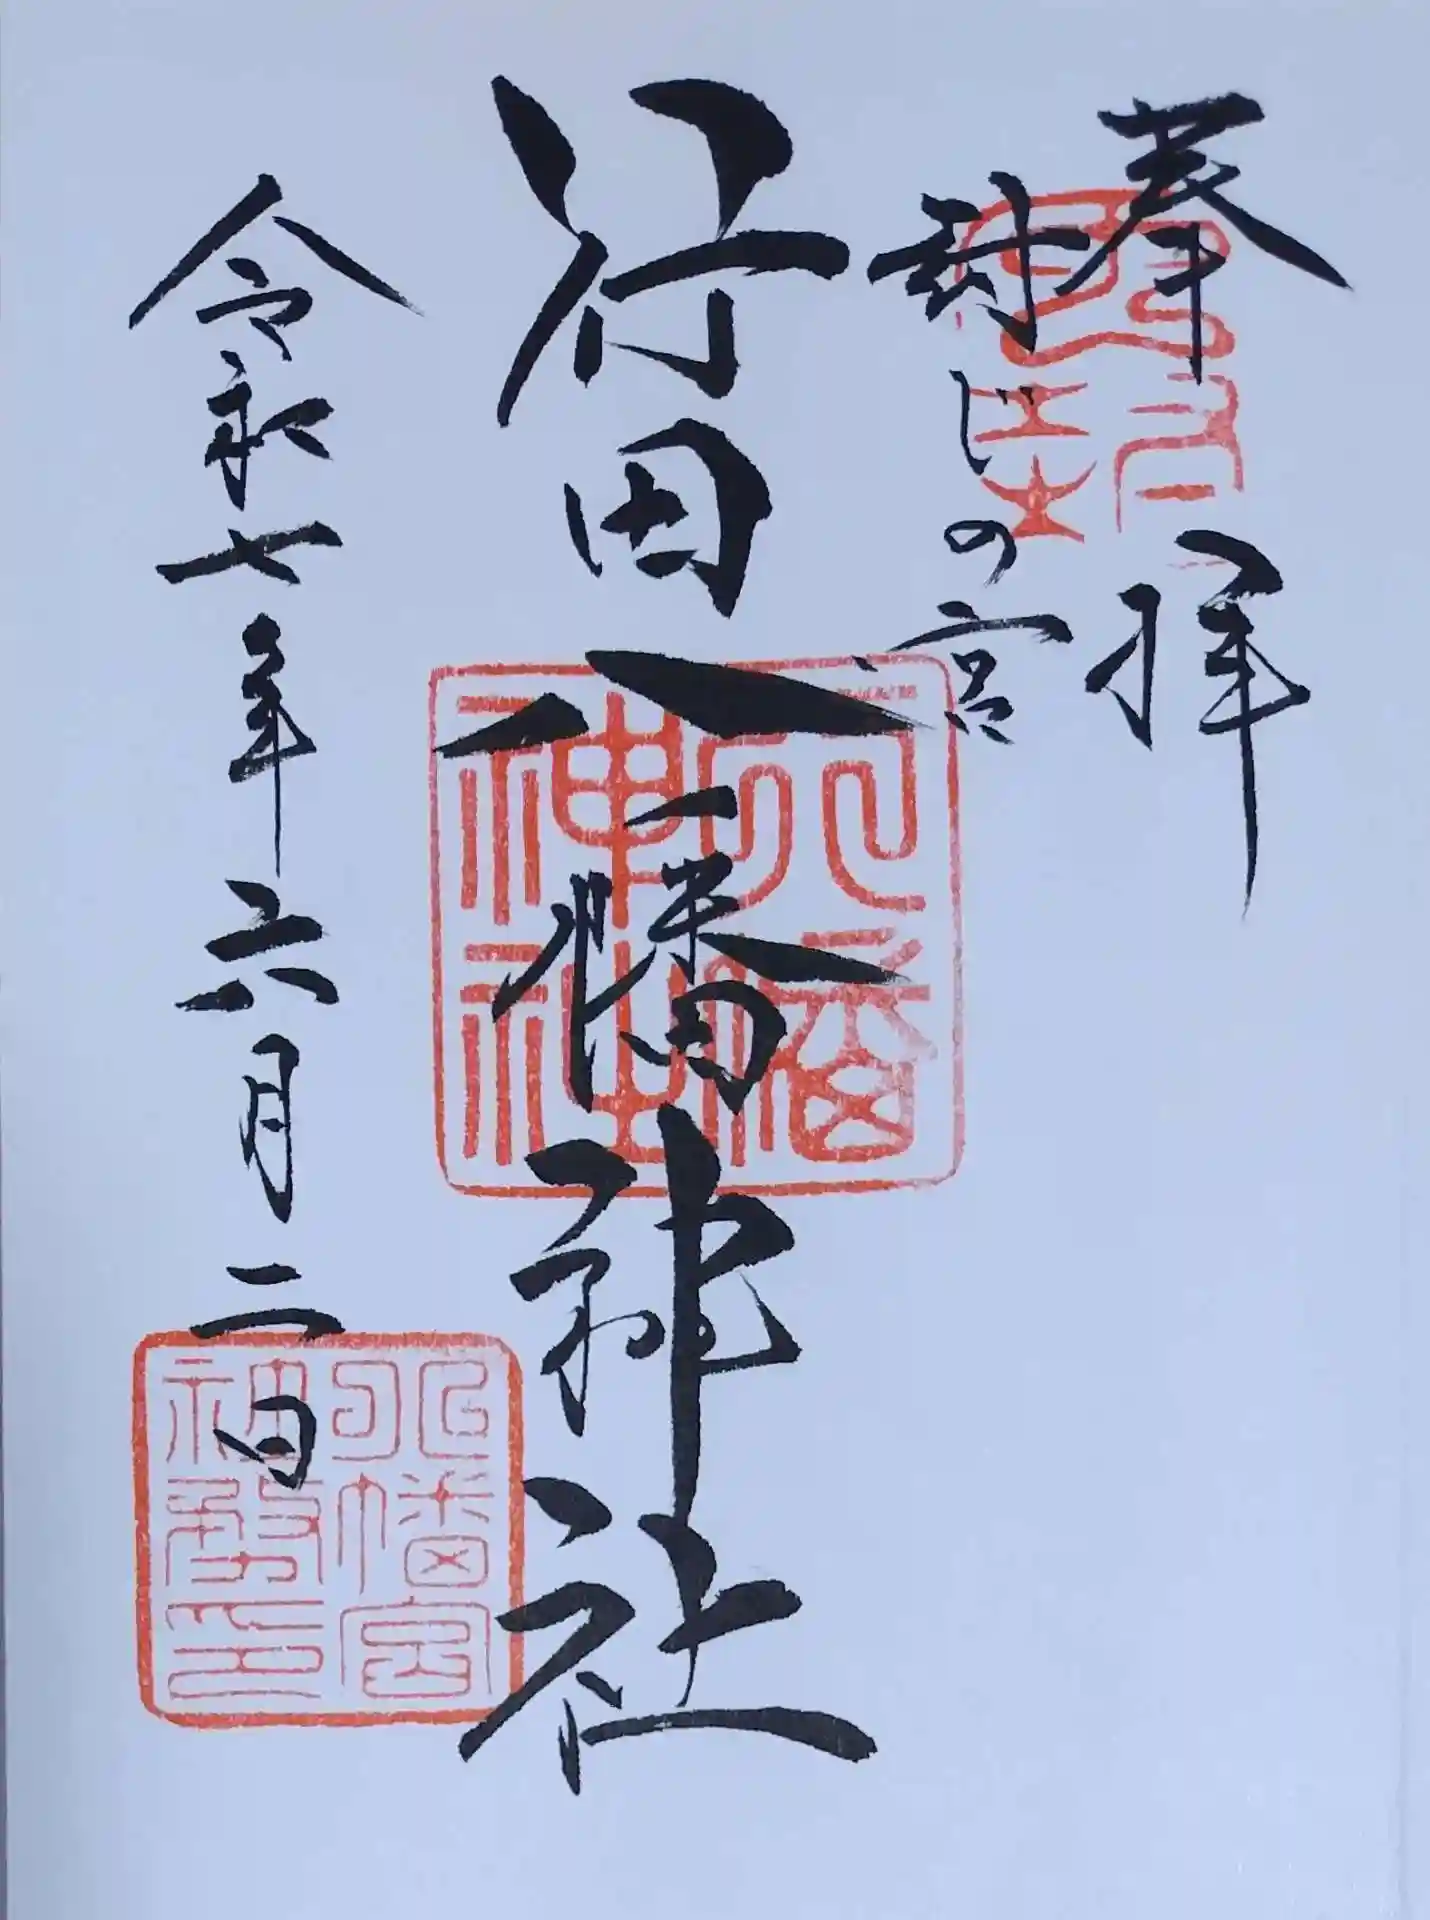 奉拝
封じの宮
行田八幡神社
八幡
神社
令和七年六月二日